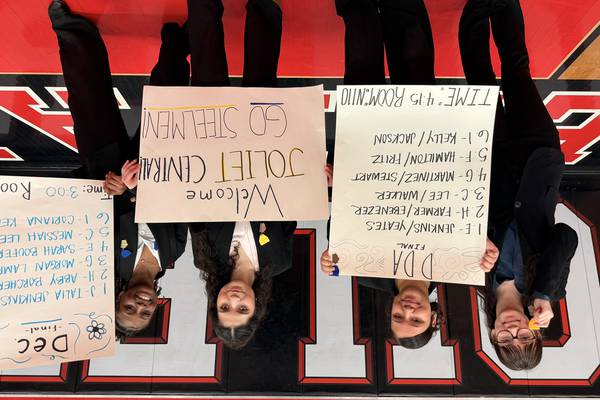 DDA
FINAL
1 E - JENKINS/YEATES
2 H - FARMER/EBENEZER
3 C - LEE/WALKER
4 G - MARTINEZ/STEWART
5 F - HAMILTON/FRITZ
6 I - KELLY/JACKSON
TIME: 4:15 / ROOM: N110
Welcome
JOLIET CENTRAL
GO STEELMEN!
Dec.
Final
1 J - TALIA JENKINS
2 H - ABBY
3 G - MORGAN
4 E - SARAH
5 C - MESSIAH LEE
6 I - CORIANA
Time: 3:00